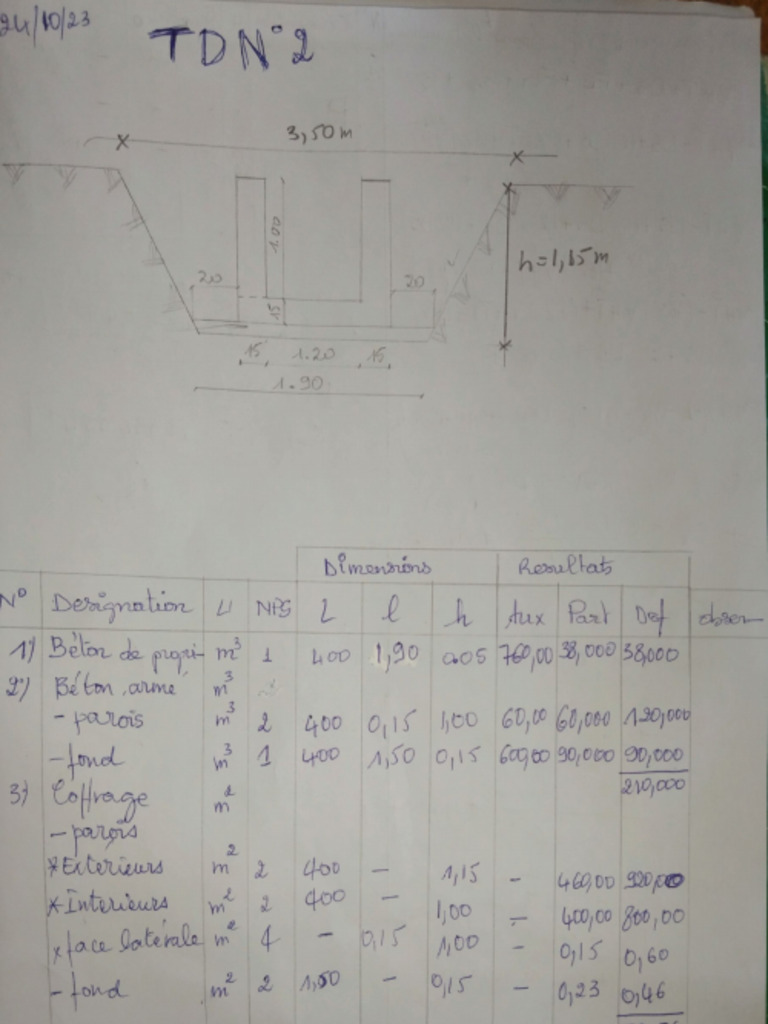 24/10/23
TD N° 2
3,50 m
1.00
20
20
h=1,15m
15
15 1.20 15
1.90
Dimensions Resultats
N° Designation U NPS L l h Aux Part Def obser
1) Béton de propri- m³ 1 400 1,90 0.05 760,00 38,000 38,000
2) Béton armé m³
- parois m³ 2 400 0,15 1,00 60,00 60,000 120,000
- fond m³ 1 400 1,50 0,15 600,00 90,000 90,000
210,000
3) Coffrage m²
- parois
* Extérieurs m² 2 400 - 1,15 - 460,00 920,00
* Interieurs m² 2 400 - 1,00 - 400,00 800,00
x face latérale m² 4 - 0,15 1,00 - 0,15 0,60
- fond m² 2 1,50 - 0,15 - 0,23 0,46